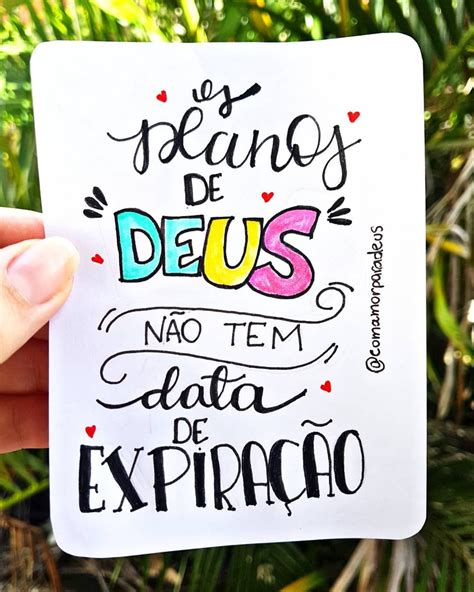 os
planos
DE
DEUS
NÃO TEM
data
DE
EXPIRAÇÃO
@comamorparadeus